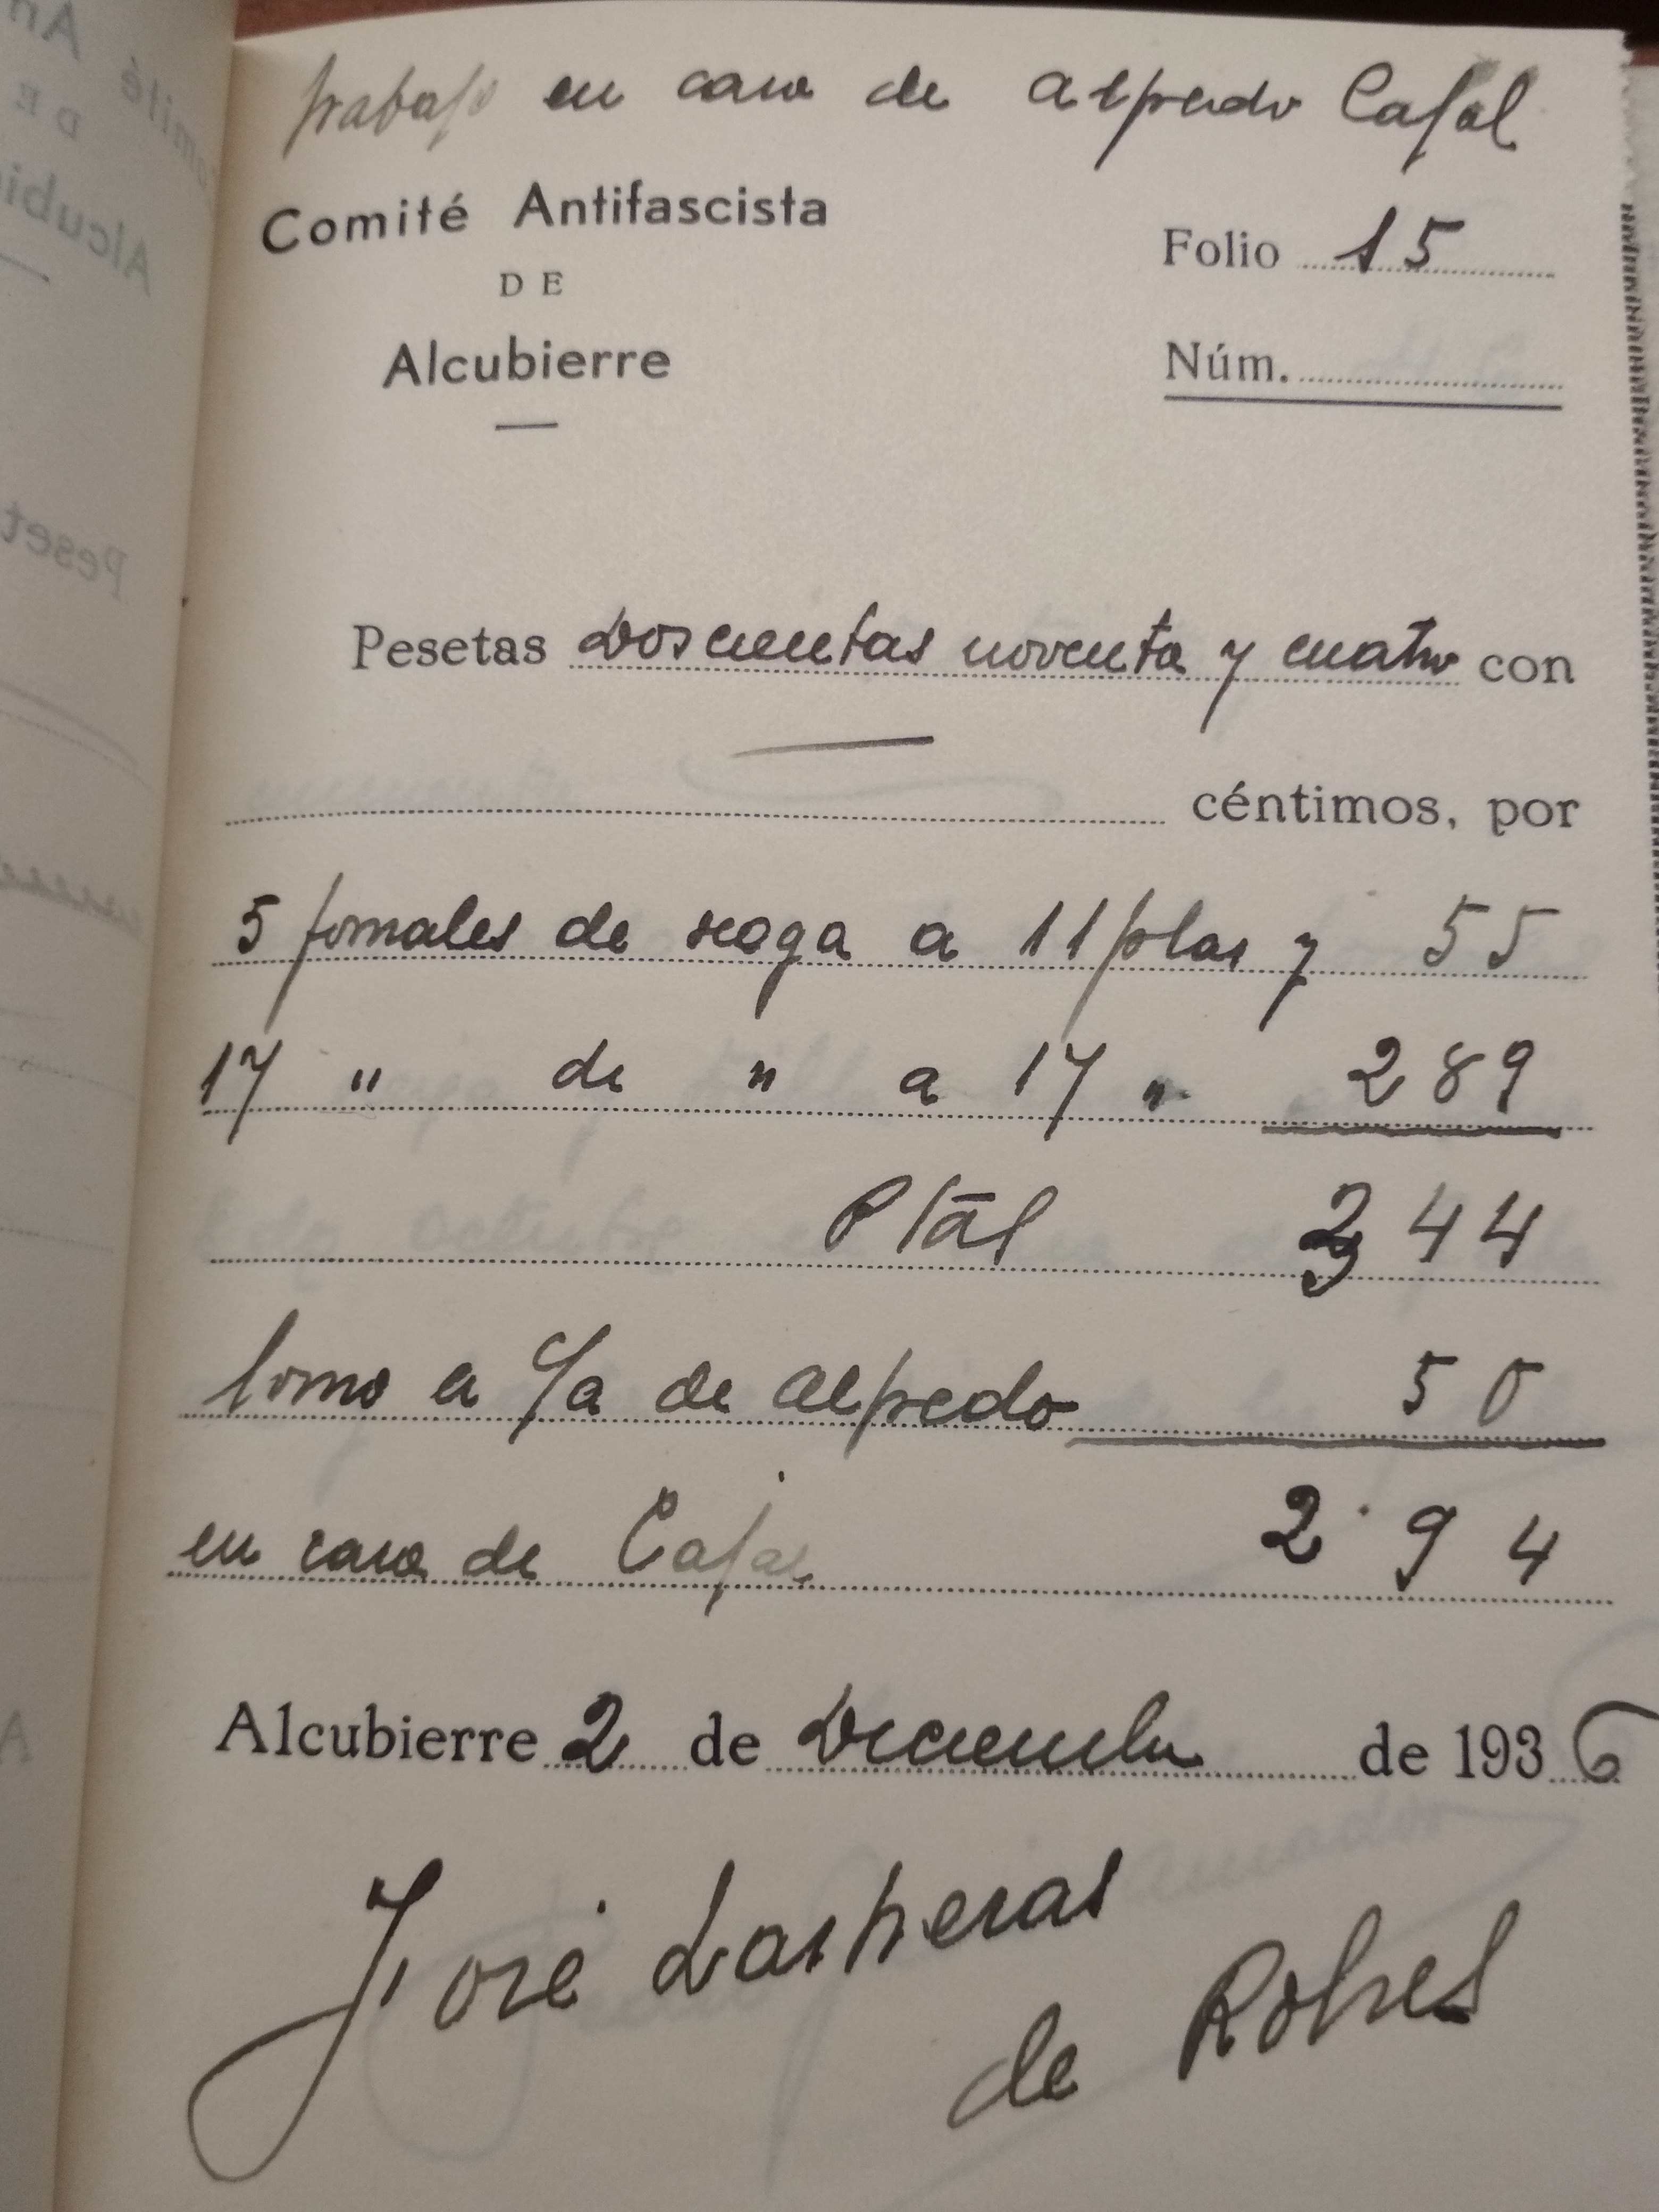 trabajo en casa de Alfredo Cajal
Comité Antifascista
DE
Alcubierre
Folio 15
Núm.
Pesetas Doscientas noventa y cuatro con
céntimos, por
5 jornales de siega a 11 ptas y 55
17 " de " a 17 " 289
Ptas 344
Tomó a c/a de Alfredo 50
en casa de Cajal 294
Alcubierre 2 de Diciembre de 1936
José Lasheras
de Robres